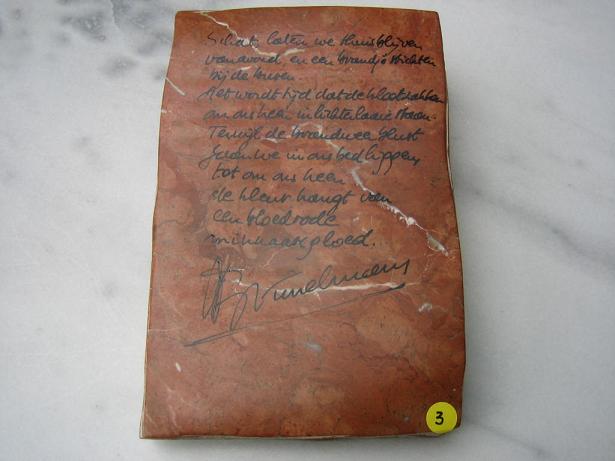 Schat, laten we thuisblijven
vanavond, en een brandje stichten
bij de buren.
Het wordt tijd dat de klootzakken
om ons heen in lichterlaaie staan.
Terwijl de brandweer blust
gaan we in ons bed liggen
tot om ons heen
de kleur hangt van
een bloedrode
minnaarsgloed.
3